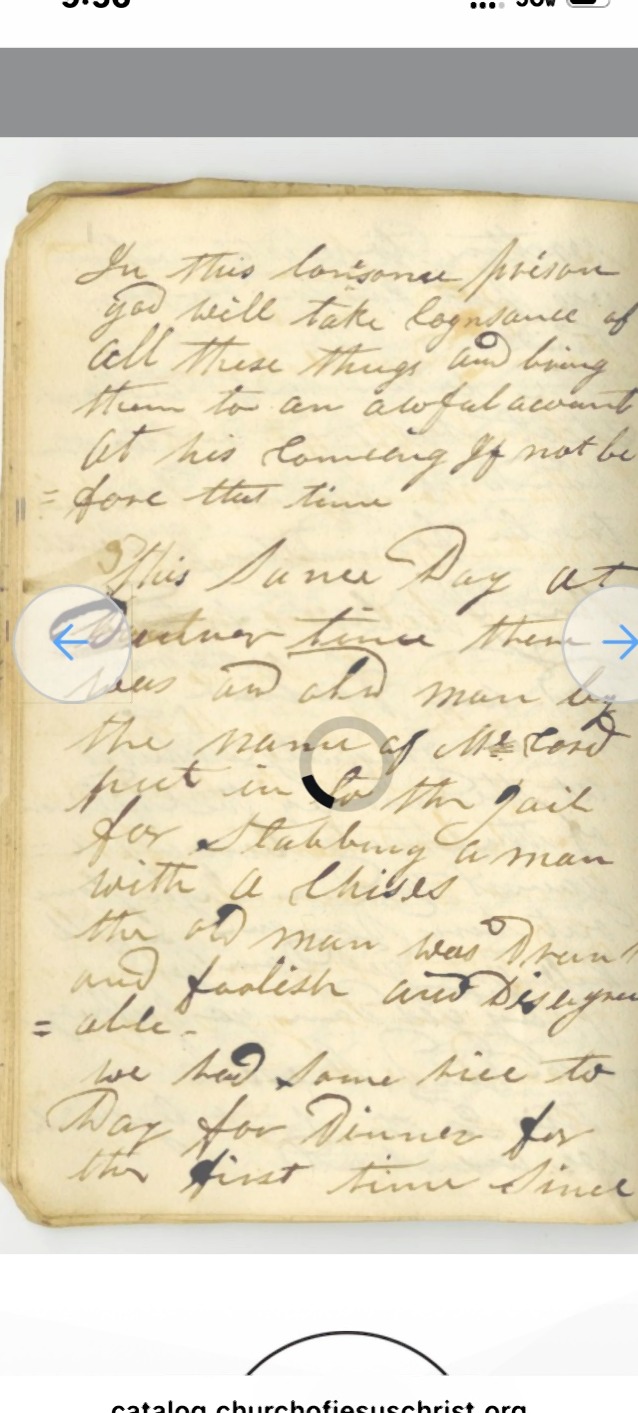 In this lonsome prison
god will take Cognsance of
all these things and bring
them to an awful acount
At his Comeing If not be
= fore that time
This Same Day at
time there
was an old man by
the name of Mr Cord
put in to the Jail
for Stabbing a man
with a Chisel
the old man was Drun
and foolish and Disagree
= able -
we had Some rice to
Day for Dinner for
the first time Since
catalog.churchofjesuschrist.org